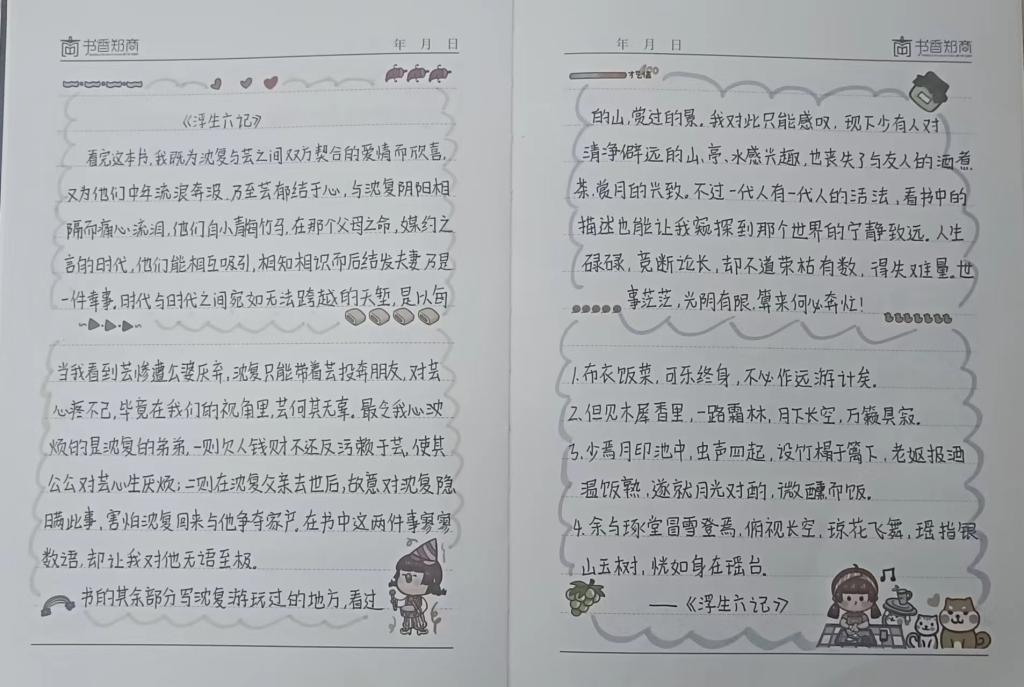 书香知商
年 月 日
《浮生六记》
看完这本书,我既为沈复与芸之间双方契合的爱情而欣喜,
又为他们中年流浪奔波,乃至芸郁结于心,与沈复阴阳相
隔而痛心流泪,他们自小青梅竹马,在那个父母之命,媒约之
言的时代,他们能相互吸引,相知相识而后结发夫妻乃是
一件幸事.时代与时代之间宛如无法跨越的天堑,是以每
当我看到芸惨遭公婆厌弃,沈复只能带着芸投奔朋友,对芸
心疼不已,毕竟在我们的视角里,芸何其无辜.最令我心沈
烦的是沈复的弟弟,一则欠人钱财不还反污赖于芸,使其
公公对芸心生厌烦;二则在沈复父亲去世后,故意对沈复隐
瞒此事,害怕沈复回来与他争夺家产.在书中这两件事寥寥
数语,却让我对他无语至极.
书的其余部分写沈复游玩过的地方,看过
年 月 日
书香知商
的山,赏过的景.我对此只能感叹,现下少有人对
清净僻远的山、亭、水感兴趣,也丧失了与友人的酒煮
茶.赏月的兴致.不过一代人有一代人的活法,看书中的
描述也能让我窥探到那个世界的宁静致远.人生
碌碌,竞断论长,却不道荣枯有数,得失难量.世
事茫茫,光阴有限,算来何必奔忙!
1.布衣饭菜,可乐终身,不必作远游计矣.
2.但见木犀香里,一路霜林,月下长空,万籁具寂.
3.少焉月印池中,虫声四起,设竹榻于篱下,老妪报酒
温饭熟,遂就月光对酌,微醺而饭。
4.余与琢堂冒雪登焉,俯视长空,琼花飞舞,瑶指银
山玉树,恍如身在瑶台.
——《浮生六记》